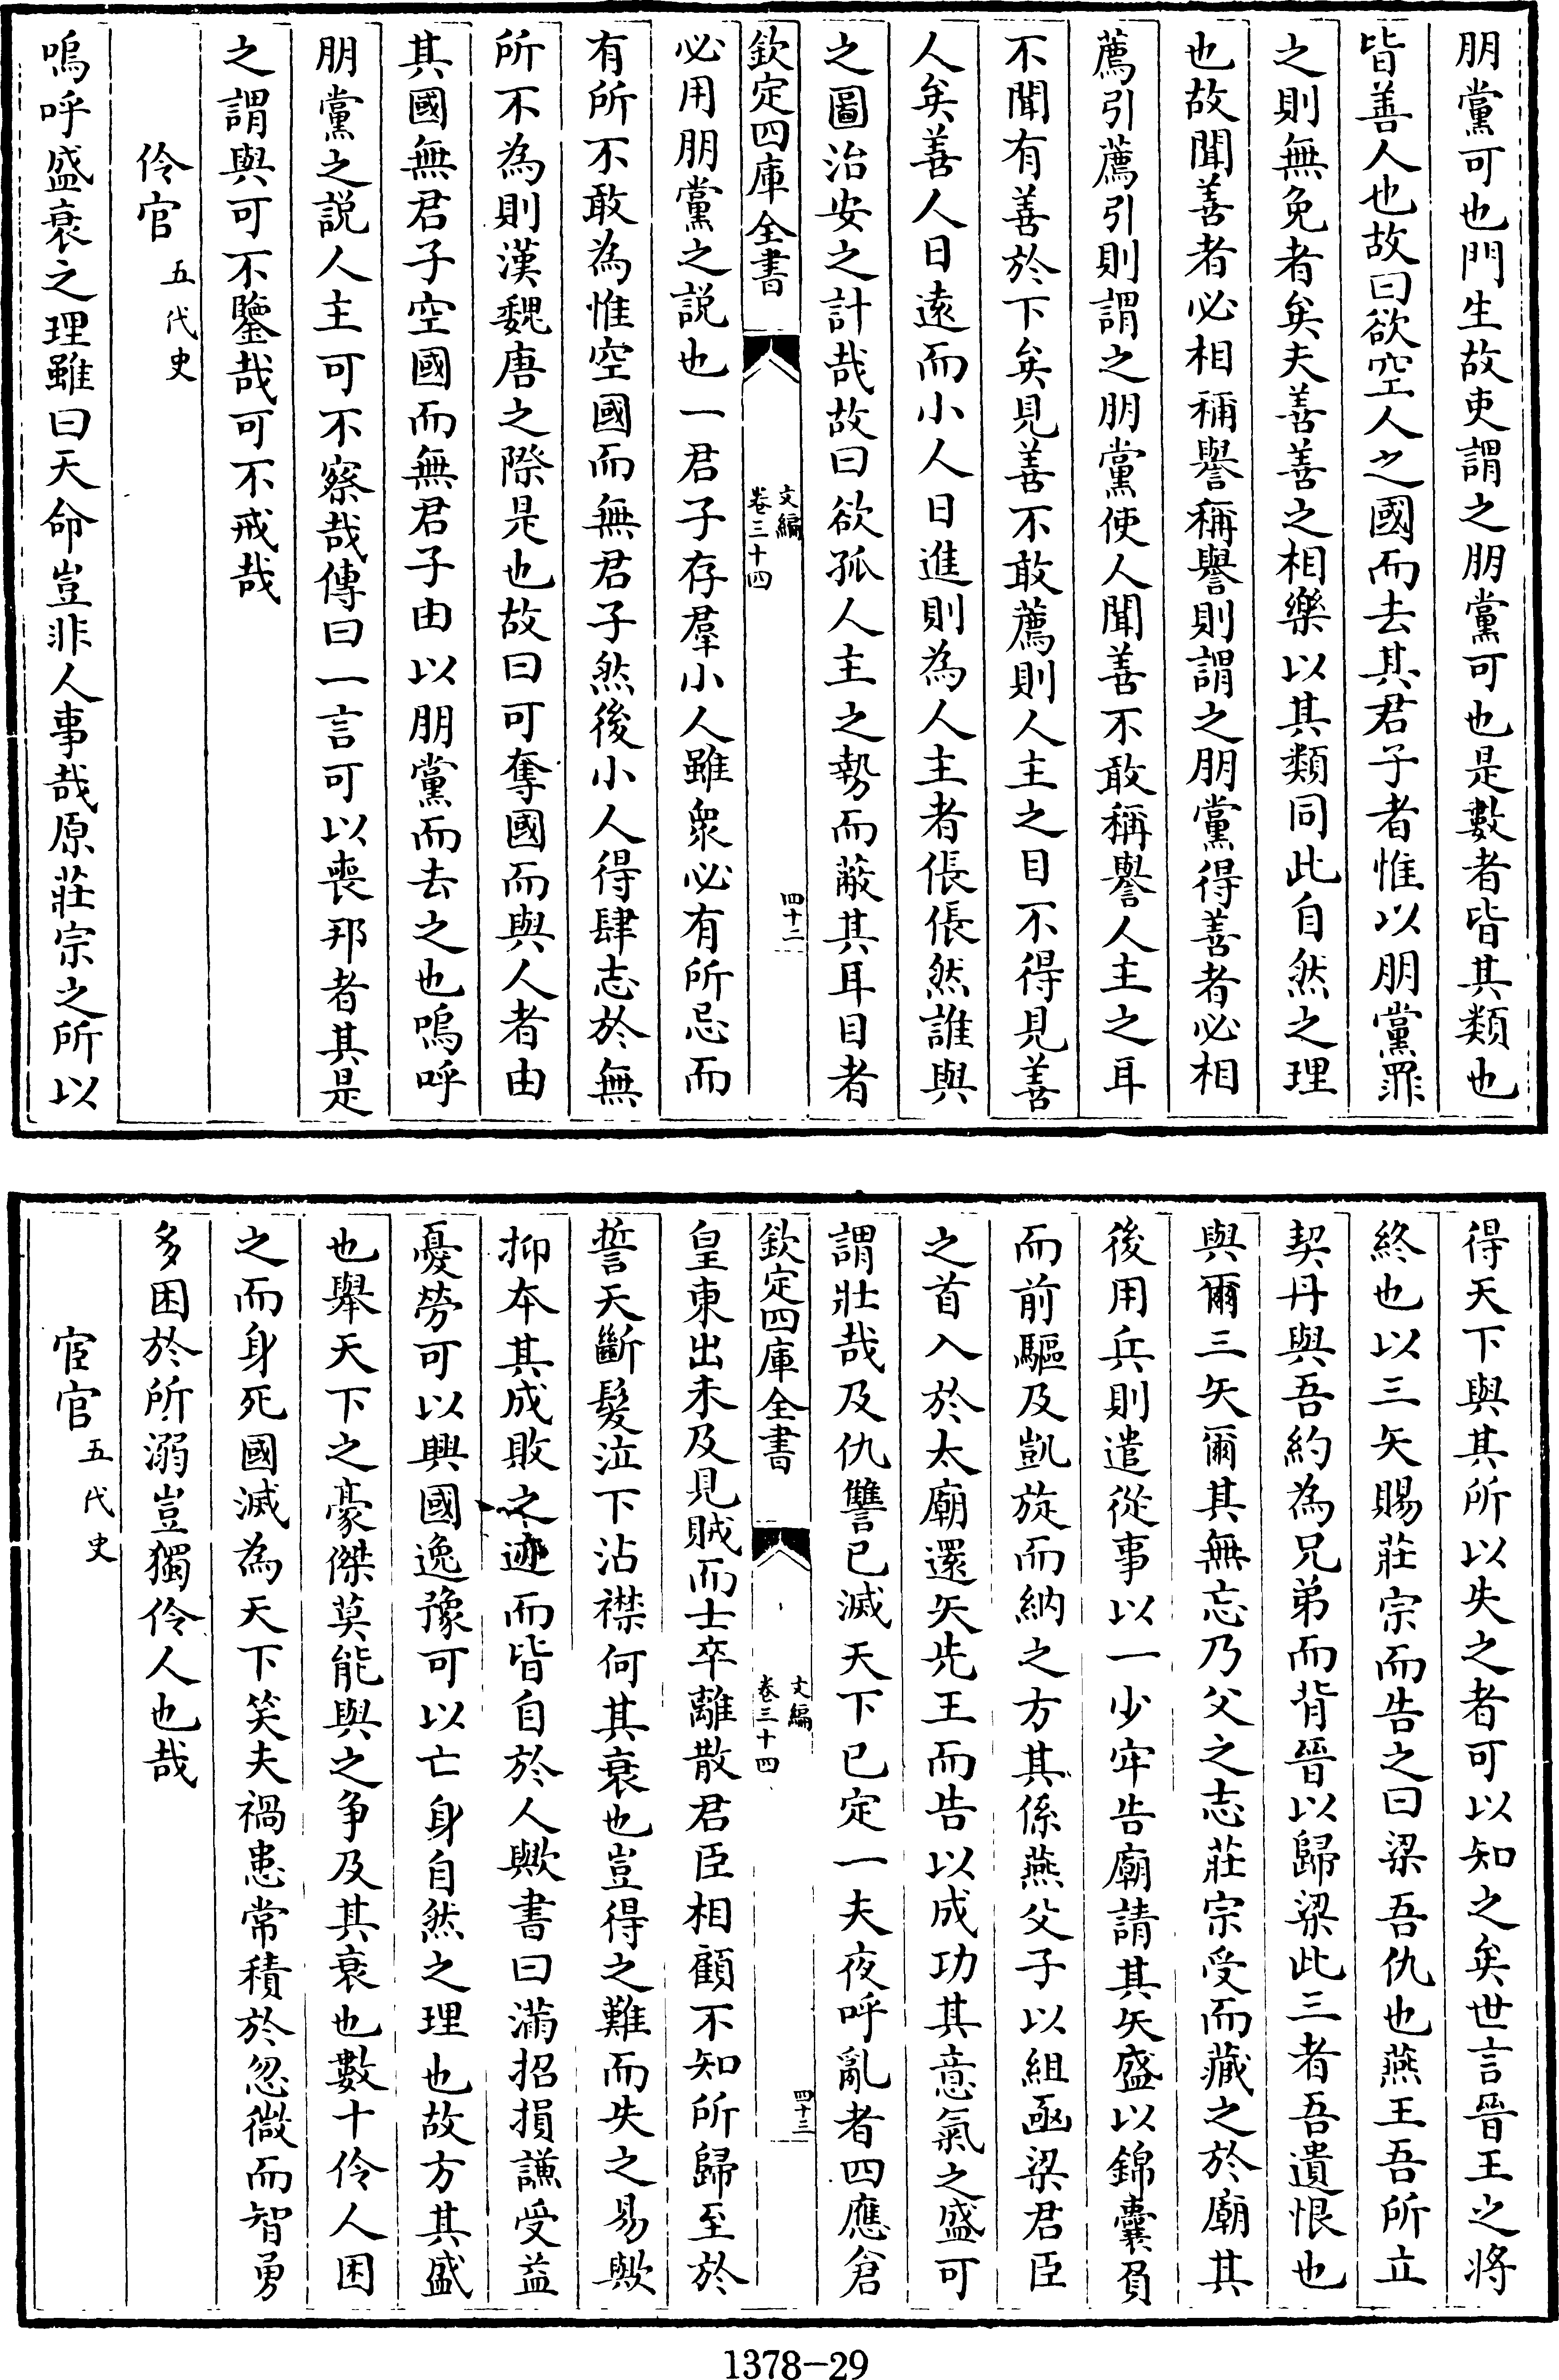 朋黨可也門生故吏謂之朋黨可也是數者皆其類也
皆善人也故曰欲空人之國而去其君子者惟以朋黨罪
之則無免者矣夫善善之相樂以其類同此自然之理
也故聞善者必相稱譽稱譽則謂之朋黨得善者必相
薦引薦引則謂之朋黨使人聞善不敢稱譽人主之耳
不聞有善於下矣見善不敢薦則人主之目不得見善
人矣善人日逺而小人日進則為人主者倀倀然誰與
之圖治安之計哉故曰欲孤人主之勢而蔽其耳目者
欽定四庫全書
文編
卷三十四
四十二
必用朋黨之說也一君子存羣小人雖衆必有所忌而
有所不敢為惟空國而無君子然後小人得肆志於無
所不為則漢魏唐之際是也故曰可奪國而與人者由
其國無君子空國而無君子由以朋黨而去之也嗚呼
朋黨之説人主可不察哉傳曰一言可以喪邦者其是
之謂與可不鑒哉可不戒哉
伶官 五代史
嗚呼盛衰之理雖曰天命豈非人事哉原莊宗之所以
得天下與其所以失之者可以知之矣世言晉王之將
終也以三矢賜莊宗而告之曰梁吾仇也燕王吾所立
契丹與吾約為兄弟而背晉以歸梁此三者吾遺恨也
與爾三矢爾其無忘乃父之志莊宗受而藏之於廟其
後用兵則遣從事以一少牢告廟請其矢盛以錦囊負
而前驅及凱旋而納之方其係燕父子以組函梁君臣
之首入於太廟還矢先王而告以成功其意氣之盛可
謂壯哉及仇讐已滅天下已定一夫夜呼亂者四應倉
欽定四庫全書
文編
卷三十四
四十三
皇東出未及見賊而士卒離散君臣相顧不知所歸至於
誓天斷髮泣下沾襟何其衰也豈得之難而失之易歟
抑本其成敗之迹而皆自於人歟書曰滿招損謙受益
憂勞可以興國逸豫可以亡身自然之理也故方其盛
也舉天下之豪傑莫能與之争及其衰也數十伶人困
之而身死國滅為天下笑夫禍患常積於忽微而智勇
多困於所溺豈獨伶人也哉
宦官 五代史
1378-29